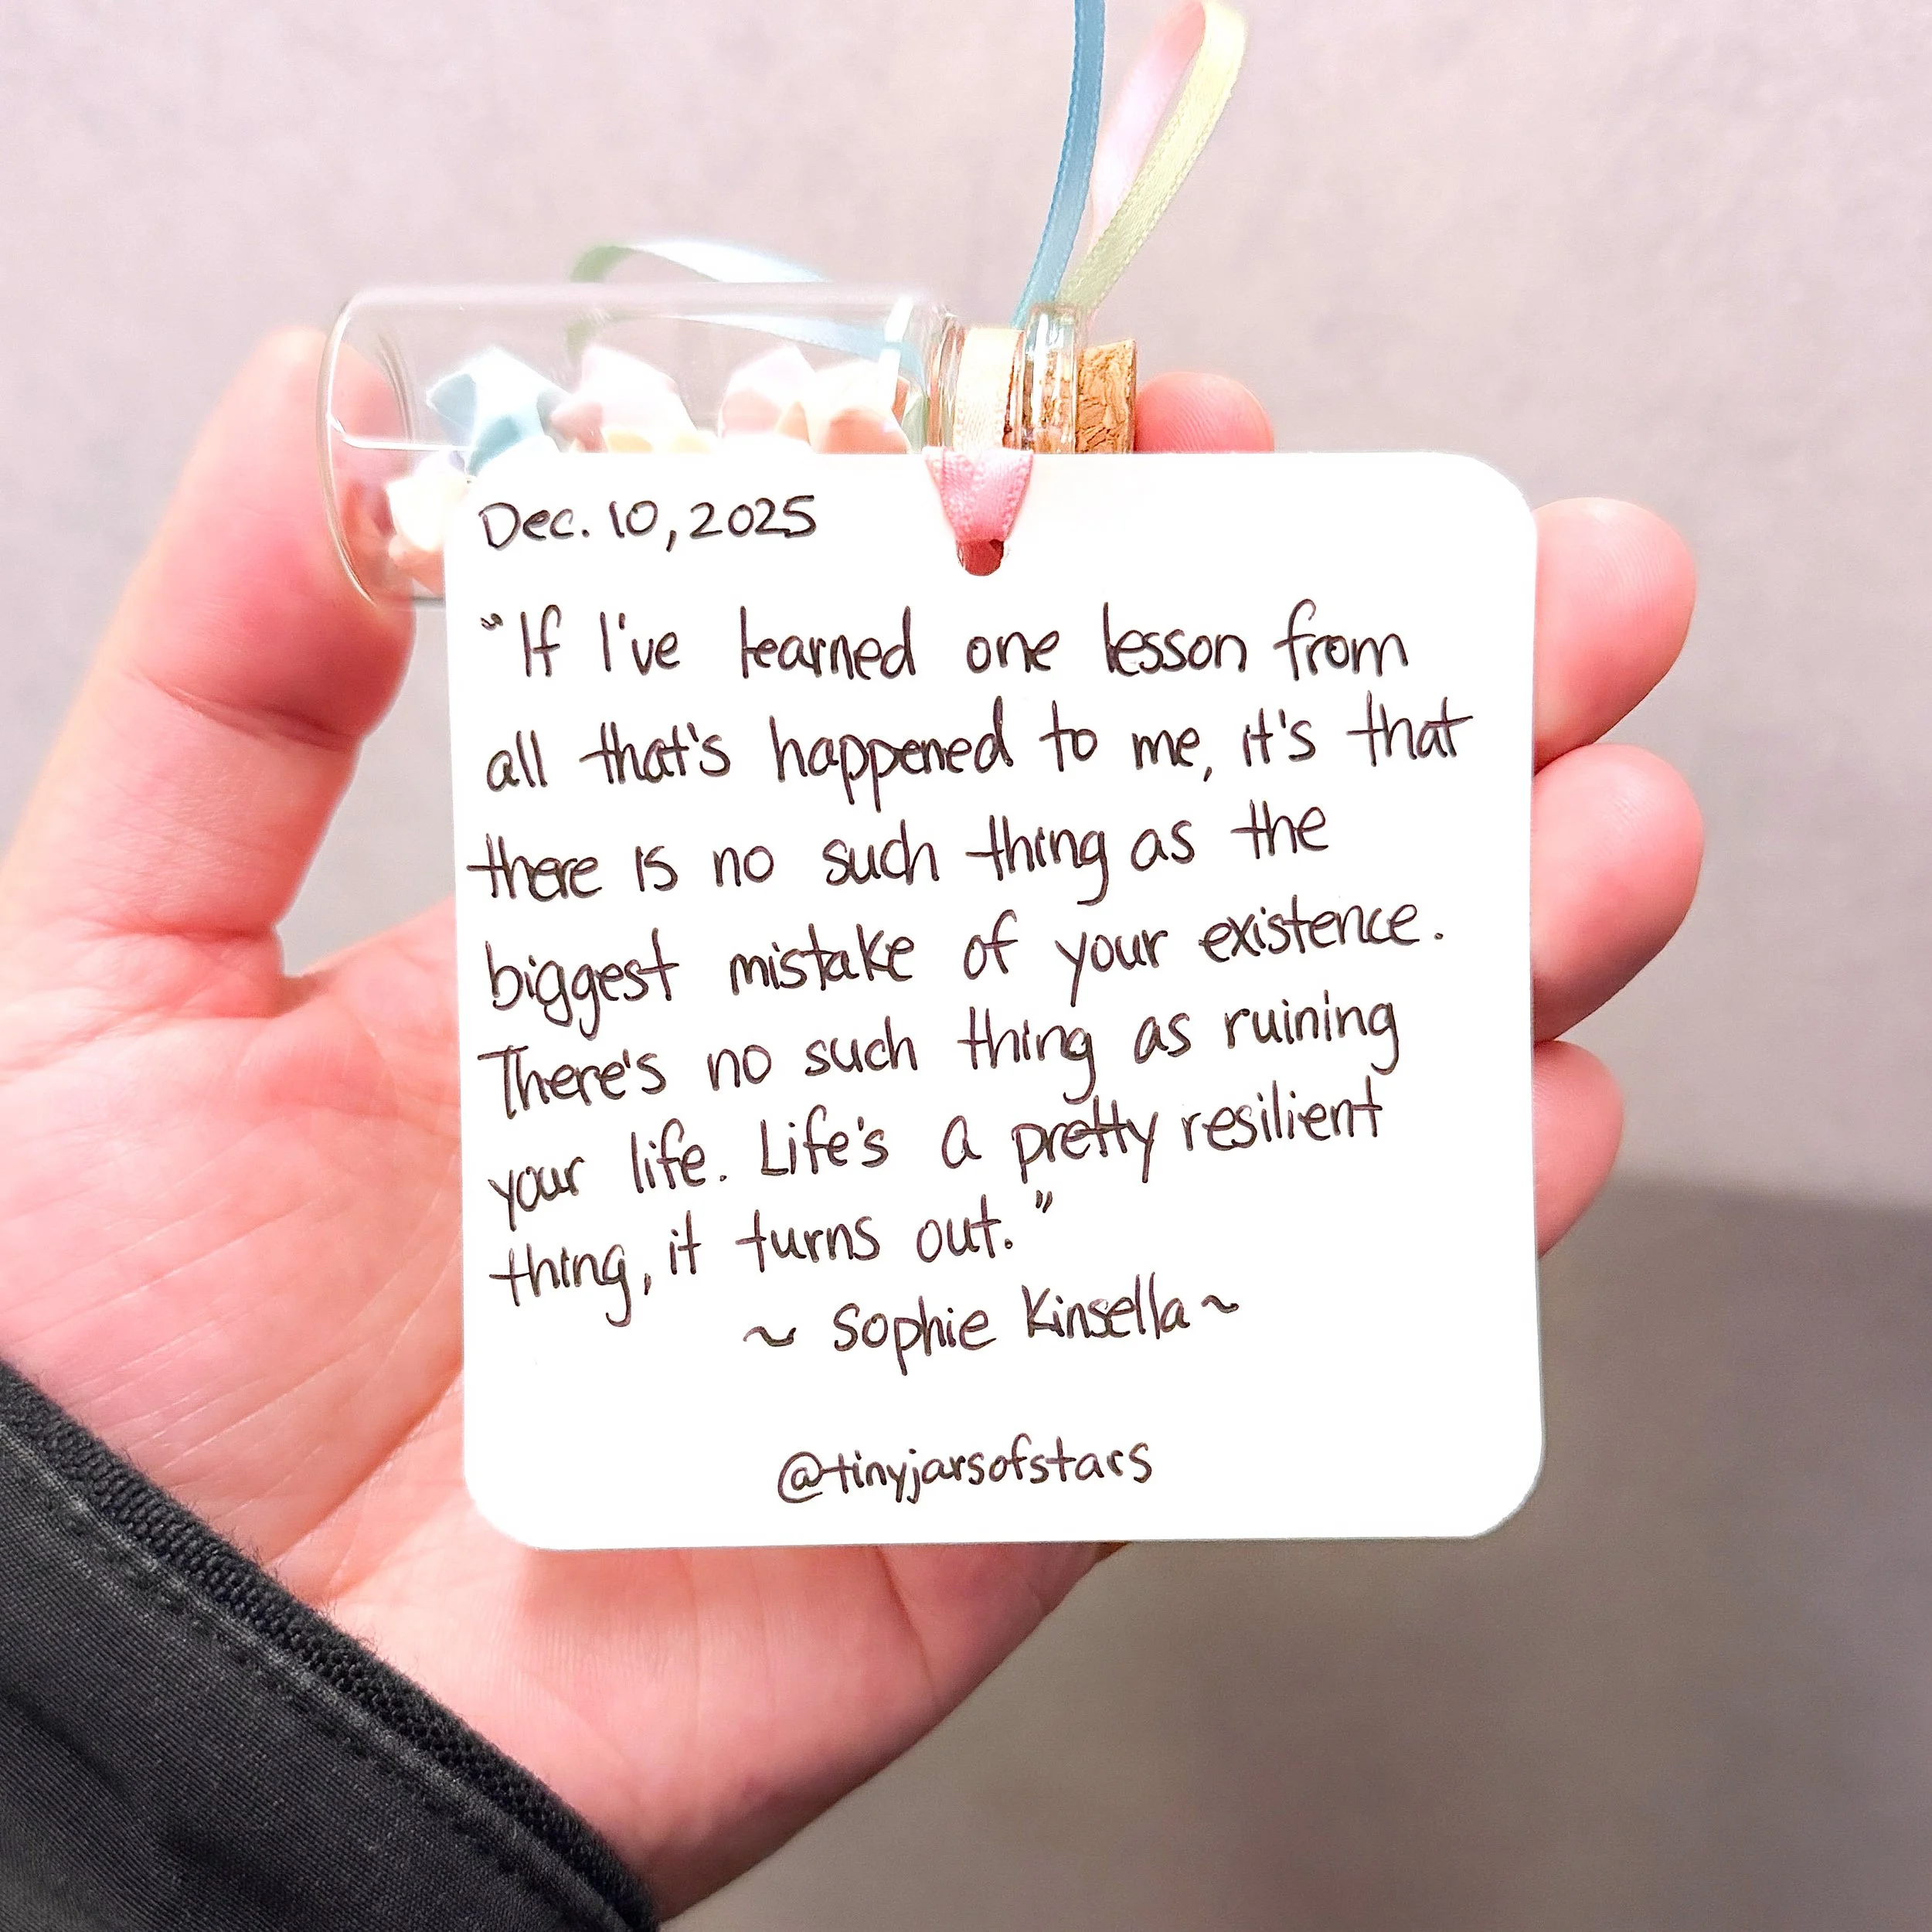 Dec. 10, 2025
"If I've learned one lesson from
all that's happened to me, it's that
there is no such thing as the
biggest mistake of your existence.
There's no such thing as ruining
your life. Life's a pretty resilient
thing, it turns out."
~ Sophie Kinsella ~
@tinyjarsofstars